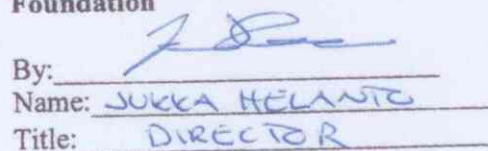 Foundation
By:
Name: JUKKA HELANTO
Title: DIRECTOR